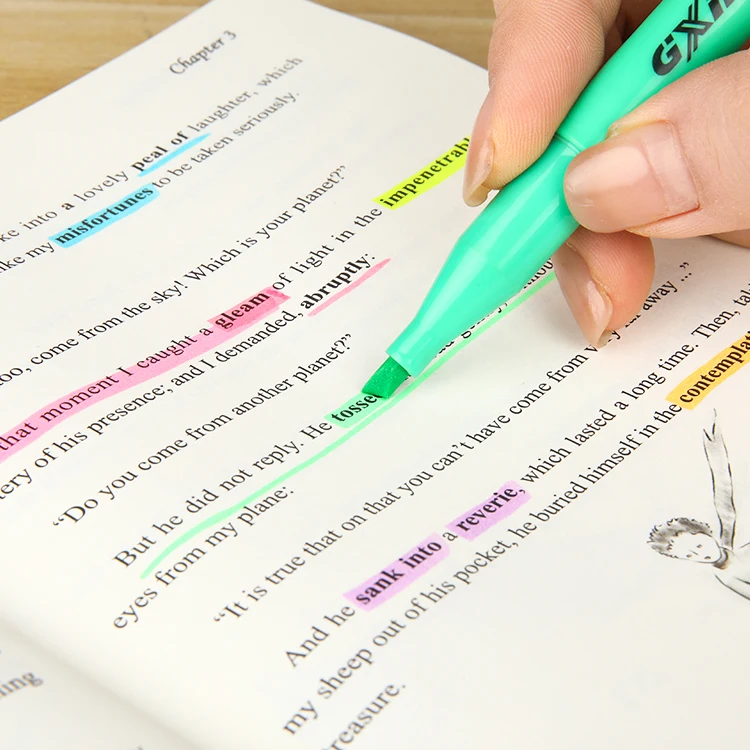 Chapter 3
into a lovely peal of laughter, which
my misfortunes to be taken seriously.
come from the sky! Which is your planet?"
that moment I caught a gleam of light in the impenetrab
of his presence; and I demanded, abruptly:
"Do you come from another planet?"
But he did not reply. He tosse
eyes from my plane:
"It is true that on that you can't have come from very away ..."
And he sank into a reverie, which lasted a long time. Then,
my sheep out of his pocket, he buried himself in the contemplat
reasure.